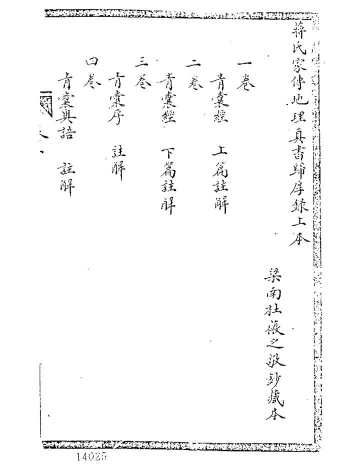 蔣氏家傳地理真書歸厚錄上本
梁南壯張之汲抄藏本
一卷
青囊經 上篇註解
二卷
青囊經 下篇註解
三卷
青囊序 註解
四卷
青囊奧語 註解
14025